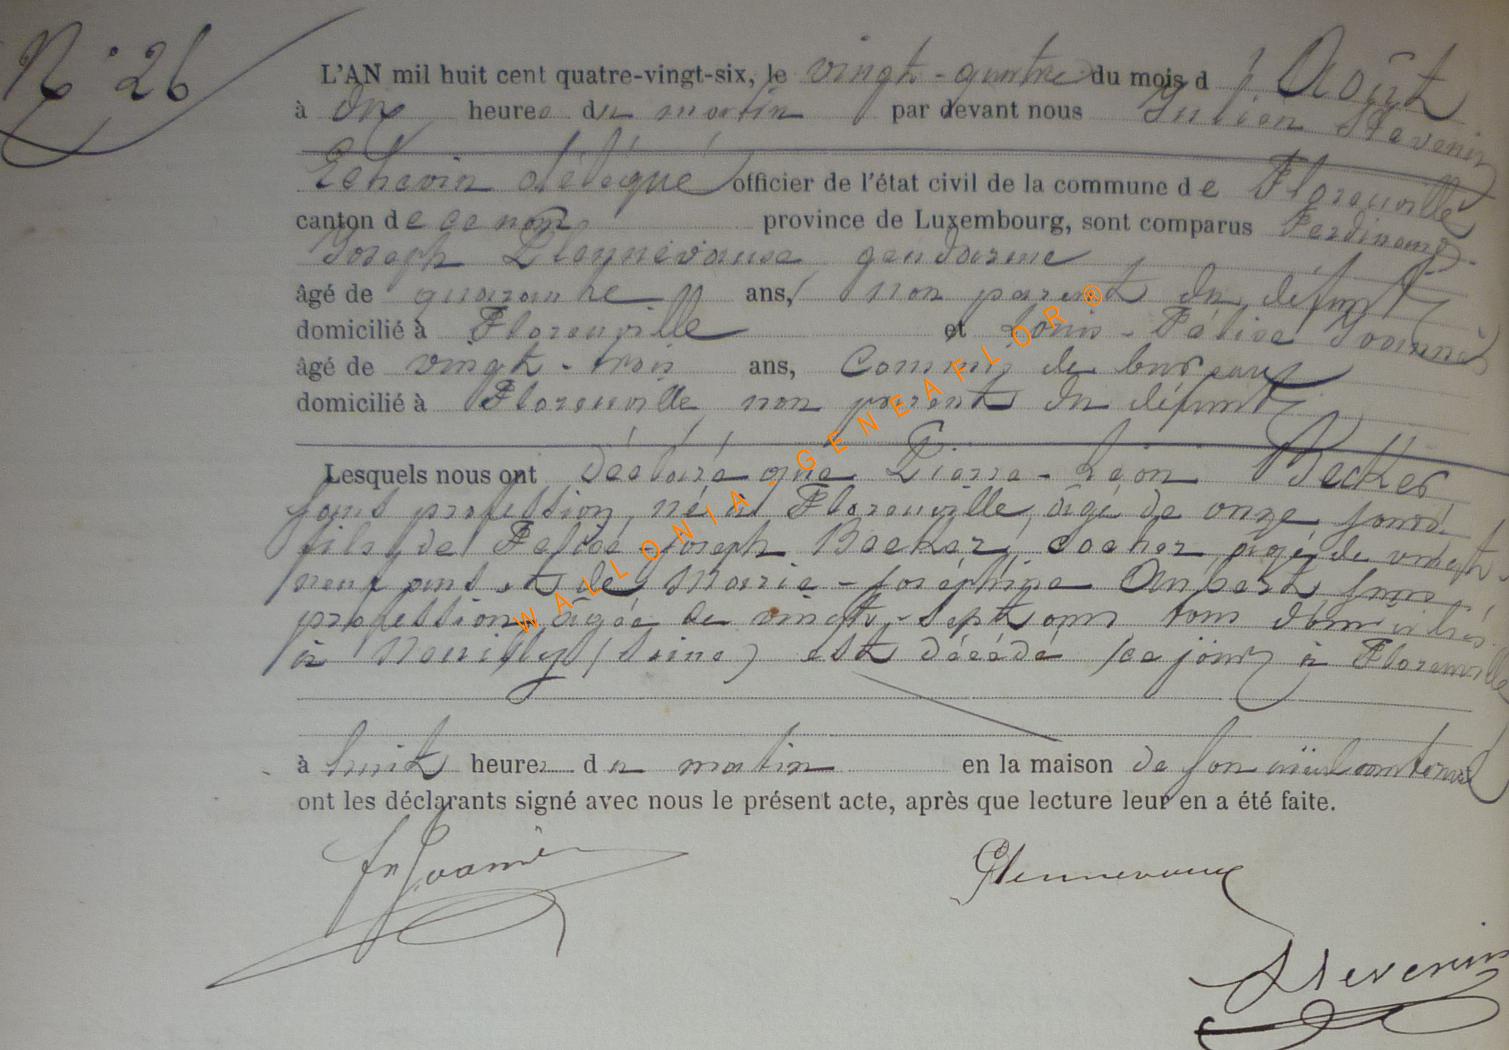 N° 26
L'AN mil huit cent quatre-vingt-six, le vingt-quatre du mois d'Août
à dix heures du matin par devant nous Julien Stevenin
Echevin délégué officier de l'état civil de la commune de Florenville
canton de ce nom province de Luxembourg, sont comparus Ferdinand
Joseph gendarme
âgé de quarante ans, non parent du défunt
domicilié à Florenville et Louis-Félix
âgé de vingt-trois ans, Commis de bureau
domicilié à Florenville non parent du défunt
Lesquels nous ont déclaré que Pierre-Léon Becker
sans profession, né à Florenville, âgé de onze jours
fils de Joseph Becker, cocher âgé de vingt-
neuf ans et de Marie-Joséphine sans
profession, âgée de vingt-sept ans tous domiciliés
à Neuilly (Seine) est décédé ce jour à Florenville
à huit heures du matin en la maison de son aïeul maternel
ont les déclarants signé avec nous le présent acte, après que lecture leur en a été faite.
Stevenin
WALLONIA-GENEAFLOR®